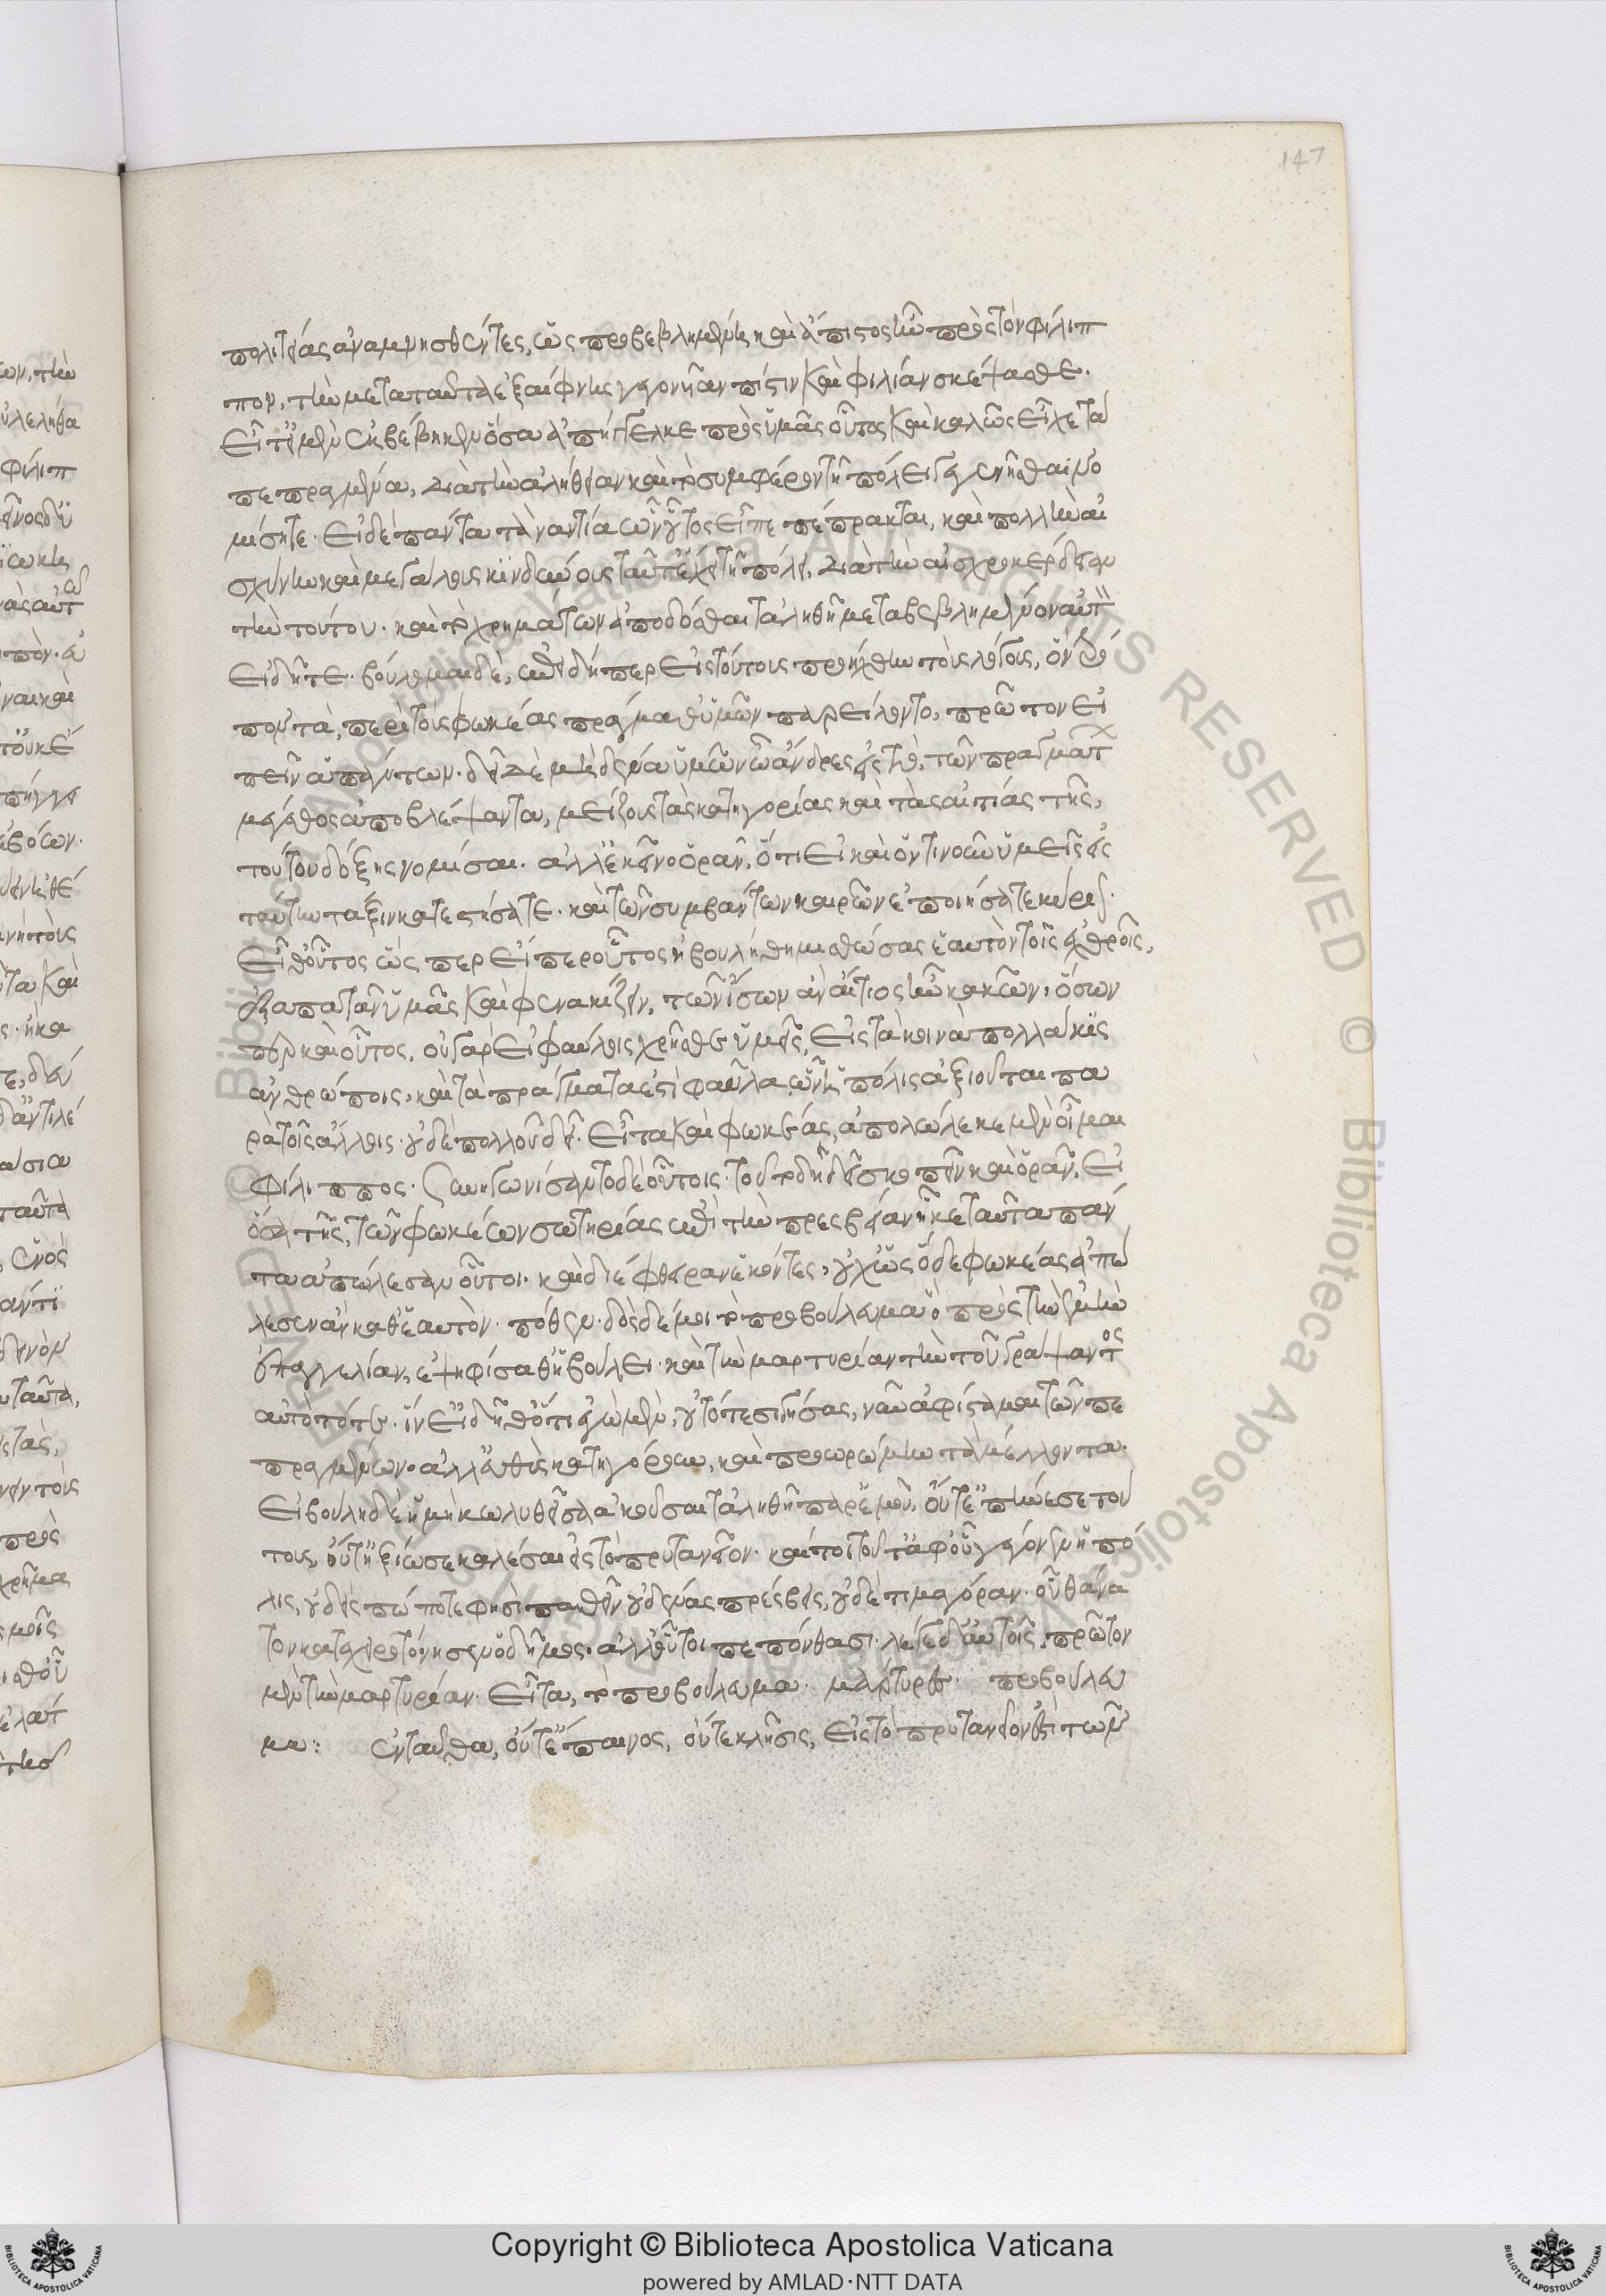 147
πολιτείας ἀναμνησθέντες, ὡς προβεβλημένη καὶ ἄπιστος ἦν πρὸς τὸν φίλιπ
πον, τὴν μετὰ ταῦτα ἐξαίφνης γεγονυῖαν πίστιν καὶ φιλίαν σκέψασθε.
εἶτ' εἰ μὲν ἐκβέβηκεν ὅσα ἀπήγγελκε πρὸς ὑμᾶς οὗτος καὶ καλῶς ἔχει τὰ
πεπραγμένα, διὰ τὴν ἀλήθειαν καὶ τὸ συμφέρον τῆ πόλει γεγενῆσθαι νο
μίσητε. εἰ δὲ πάντα τἀναντία ὧν οὗτος εἶπε πέπρακται, καὶ πολλὴν αἰ
σχύνην καὶ μεγάλους κινδύνους ταῦτ' ἔχει τῆ πόλει, διὰ τὴν αἰσχροκέρδειαν
τὴν τούτου. καὶ τὸ χρημάτων ἀποδόσθαι τἀληθῆ μεταβεβλημένον αὐτὸν
εἰδῆτε. βούλομαι δὲ, ἐπειδήπερ εἰς τούτους προήχθην τοὺς λόγους, ὃν τρό
πον τὰ περὶ τοὺς φωκέας πράγμαθ' ὑμῶν παρείλοντο, πρῶτον εἰ
πεῖν ἁπάντων. δεῖ δὲ μηδένα ὑμῶν ὦ ἄνδρες εἰς τὸ τῶν πραγμάτων
μέγεθος ἀποβλέψαντα, μείζους τὰς κατηγορίας καὶ τὰς αἰτίας τῆς
τούτου δόξης νομίσαι. ἀλλ' ἐκεῖνο ὁρᾶν, ὅτι εἰ καὶ ὅντιν' οὖν ὑμεῖς εἰς
ταύτην τάξιν κατεστήσατε. καὶ τῶν συμβάντων καιρῶν ἐποιήσατε κύριον.
εἶθ' οὗτος ὥσπερ εἴπερ οὗτος ἠβουλήθη μισθώσας ἑαυτὸν τοῖς ἐχθροῖς,
ἐξαπατᾶν ὑμᾶς καὶ φενακίζειν, τῶν ἴσων ἂν αἴτιος ἦν κακῶν, ὅσων
περ καὶ οὗτος. οὐ γὰρ εἰ φαύλοις χρῆσθε ὑμεῖς, εἰς τὰ κοινὰ πολλάκις
ἀνθρώποις, καὶ τὰ πράγματα ἐστὶ φαῦλα ὧν ἡ πόλις ἀξιοῦται πα
ρὰ τοῖς ἄλλοις. οὐδὲ πολλοῦ δεῖ. εἶτα καὶ φωκέας, ἀπολώλεκε μὲν οἶμαι
φίλιππος. συνηγωνίσαντο δὲ οὗτοις. τοῦτο δὴ δεῖ σκοπεῖν καὶ ὁρᾶν, εἰ
ὅσα τῆς τῶν φωκέων σωτηρίας ἐπὶ τὴν πρεσβείαν ἧκε ταῦτα πάν
τα ἀπώλεσαν οὗτοι. καὶ διέφθειραν ἑκόντες, οὐχ ὡς ὅδε φωκέας ἀπώ
λεσεν ἂν καθ' ἑαυτόν. πόθεν. δὸς δέ μοι τὸ προβούλευμα ὃ πρὸς τὴν ἐμὴν
ἐπαγγελίαν, ἐψηφίσαθ' ἡ βουλή. καὶ τὴν μαρτυρίαν τὴν τοῦ γράψαντος
αὐτὸ τότε. ἵν' εἰδῆθ' ὅτι ἐγὼ μὲν, οὐ τότε σιγήσας, νῦν ἀφίσταμαι τῶν πε
πραγμένων. ἀλλ' εὐθὺς κατηγόρουν, καὶ προεωρώμην τὰ μέλλοντα.
ἡ βουλὴ δὲ ἡ μὴ κωλυθεῖσα ἀκοῦσαι τἀληθῆ παρ' ἐμοῦ, οὔτ' ἐπήνεσε τού
τους, οὔτ' ἠξίωσε καλέσαι εἰς τὸ πρυτανεῖον. καίτοι τοῦτ' ἀφ' οὗ γέγονεν ἡ πό
λις, οὐδεὶς πώποτέ φησι παθεῖν οὐδένας πρέσβεις, οὐδὲ τιμαγόραν. οὗ θάνα
τον κατεχειροτόνησεν ὁ δῆμος. ἀλλ' οὗτοι πεπόνθασι. λέγε δ' αὐτοῖς, πρῶτον
μὲν τὴν μαρτυρίαν. εἶτα, τὸ προβούλευμα. μάρτυρες. προβούλευ
μα: ἐνταῦθα, οὔτ' ἔπαινος, οὔτε κλῆσις, εἰς τὸ πρυτανεῖον ἐστὶ τῶν
Copyright © Biblioteca Apostolica Vaticana
powered by AMLAD·NTT DATA